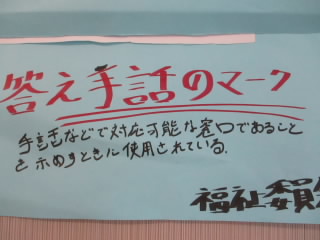 答え手話のマーク
手話などで対応可能な窓口であること
を示めすときに使用されている.
福祉委員